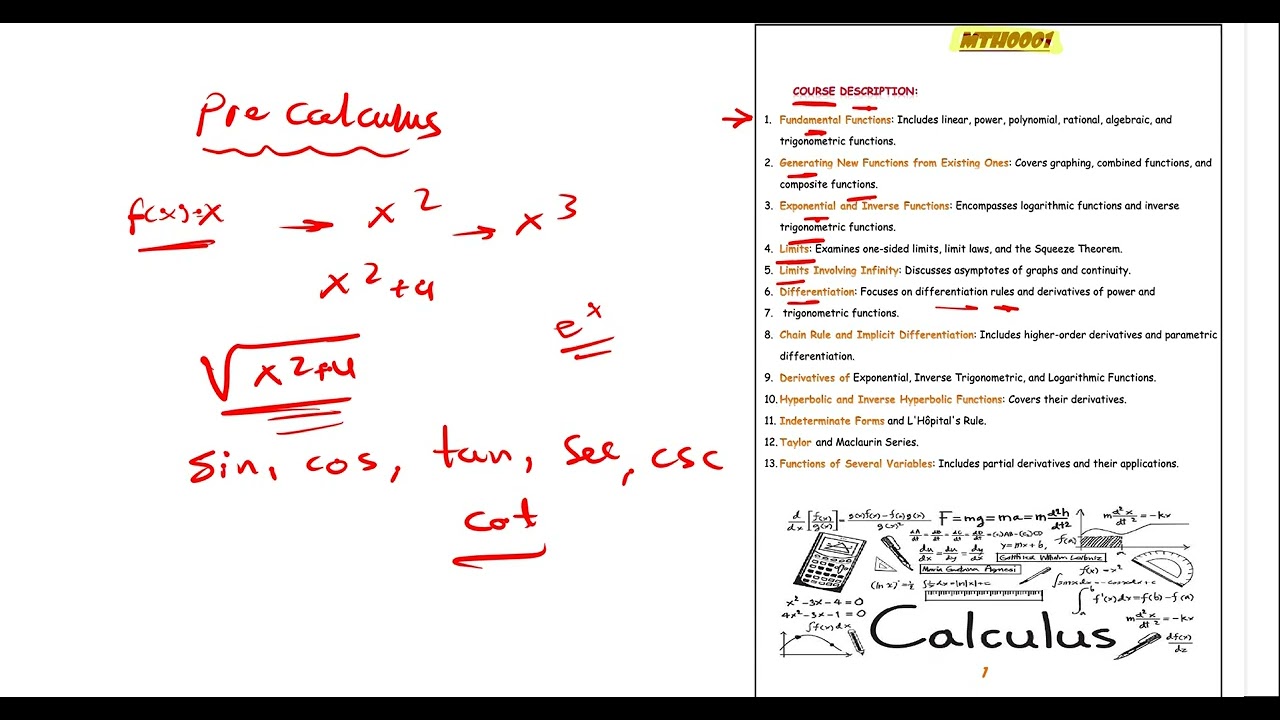 Pre Calculus
f(x)=x → x² → x³
x²+4
eˣ
√x²+4
sin, cos, tan, sec, csc
cot
MTH0001
COURSE DESCRIPTION:
1. Fundamental Functions: Includes linear, power, polynomial, rational, algebraic, and
trigonometric functions.
2. Generating New Functions from Existing Ones: Covers graphing, combined functions, and
composite functions.
3. Exponential and Inverse Functions: Encompasses logarithmic functions and inverse
trigonometric functions.
4. Limits: Examines one-sided limits, limit laws, and the Squeeze Theorem.
5. Limits Involving Infinity: Discusses asymptotes of graphs and continuity.
6. Differentiation: Focuses on differentiation rules and derivatives of power and
7. trigonometric functions.
8. Chain Rule and Implicit Differentiation: Includes higher-order derivatives and parametric
differentiation.
9. Derivatives of Exponential, Inverse Trigonometric, and Logarithmic Functions.
10. Hyperbolic and Inverse Hyperbolic Functions: Covers their derivatives.
11. Indeterminate Forms and L'Hôpital's Rule.
12. Taylor and Maclaurin Series.
13. Functions of Several Variables: Includes partial derivatives and their applications.
F=mg=ma=m
y=mx+b,
f(x)=x²
x²-3x-4=0
4x²-3x-1=0
∫f(x)dx
Calculus
1